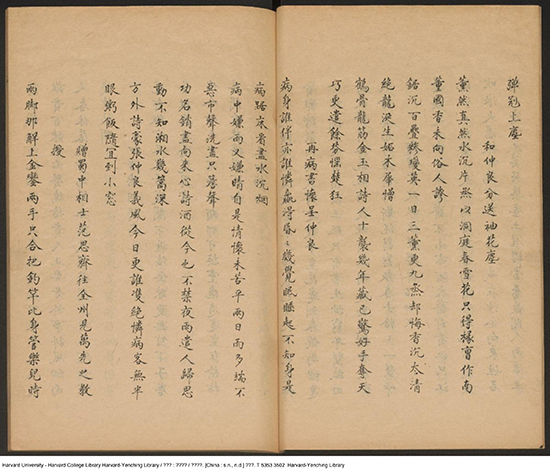 彈冠王塵
和仲良分送柚花塵
薰然真然水沉片烝以洞庭春雪花只得掾曹作南
董國香未向俗人誇
鋸沉百疊糝瓊英一日三薰更九烝却悔香沉太清
絕龍涎生妬木犀憎
鶴骨龍筋金玉相詩人十襲幾年藏已驚好手奪天
巧更遣餘芬惱楚狂
再病書懷呈仲良
病身誰伴亦誰憐贏得昏〻幾覺眠睡起不知身是
病踞床看盡水沉烟
病中嫌雨又嫌晴自是情懷未苦平兩日雨多端不
惡市聲洗盡只簷聲
功名銷盡向來心詩酒從今也不禁夜雨遣人歸思
動不知湘水幾篙深
方外詩豪張仲良義風今日更誰雙絕憐病客無半
眼粥飯隨宜到小窓
贈蜀中相士范思齊往全州見萬先之教
授
兩脚那解上金鑾兩手只合把釣竿此身管樂兒時
Harvard University - Harvard College Library Harvard-Yenching Library / ??? : ???? / ????. [China : s.n., n.d.] ???. T 5353 3502  Harvard-Yenching Library